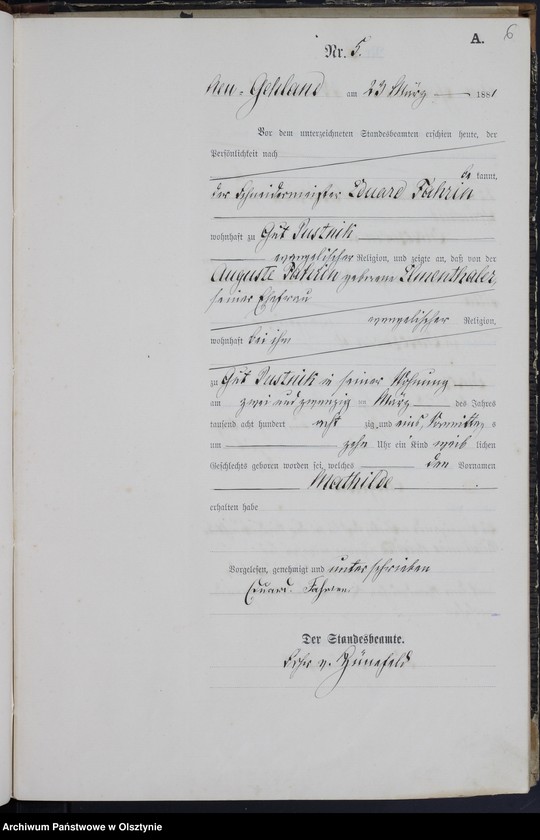 6
A.
Nr. 5.
Neu-Gehland am 23 März 1881
Vor dem unterzeichneten Standesbeamten erschien heute, der
Persönlichkeit nach
be kannt,
der Schneidermeister Eduard
wohnhaft zu Gut Pustnik
evangelischer Religion, und zeigte an, daß von der
Auguste geborene Elmenthaler,
seiner Ehefrau
evangelischer Religion,
wohnhaft bei ihm
zu Gut Pustnik in seiner Wohnung
am zwei und zwanzig ten März des Jahres
tausend acht hundert acht zig und eins, Vormittag s
um zehn Uhr ein Kind weib lichen
Geschlechts geboren worden sei, welches den Vornamen
Mathilde
erhalten habe
Vorgelesen, genehmigt und unterschrieben
Eduard
Der Standesbeamte.
v.
Archiwum Państwowe w Olsztynie